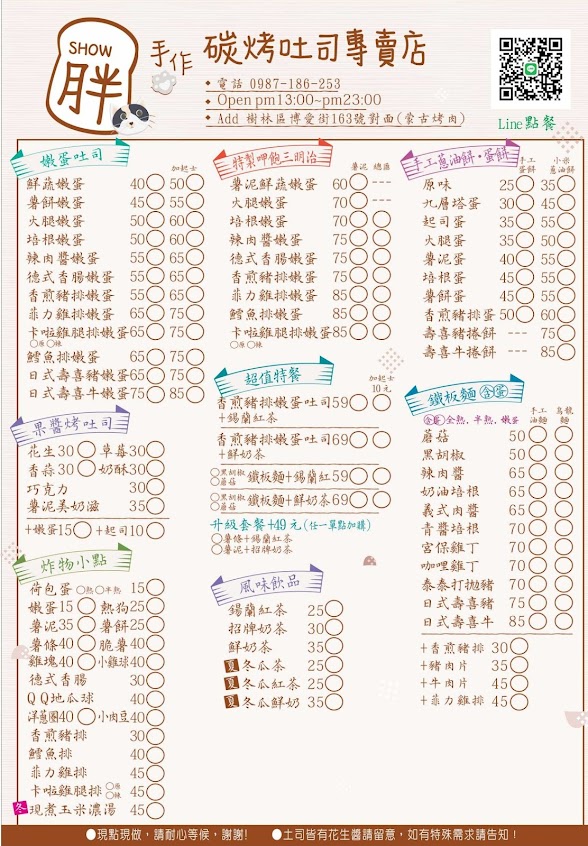 SHOW
胖
手作 碳烤吐司專賣店
電話 0987-186-253
Open pm13:00~pm23:00
Add 樹林區博愛街163號對面(蒙古烤肉)
Line點餐
嫩蛋吐司
加起士
鮮蔬嫩蛋 40 50
薯餅嫩蛋 45 55
火腿嫩蛋 50 60
培根嫩蛋 50 60
辣肉醬嫩蛋 55 65
德式香腸嫩蛋 55 65
香煎豬排嫩蛋 55 65
菲力雞排嫩蛋 65 75
卡啦雞腿排嫩蛋 65 75
原 辣
鱈魚排嫩蛋 65 75
日式壽喜豬嫩蛋 65 75
日式壽喜牛嫩蛋 75 85
果醬烤吐司
花生30 草莓30
香蒜30 奶酥30
巧克力 30
薯泥美奶滋 35
+嫩蛋15 +起司10
炸物小點
荷包蛋 熟 半熟 15
嫩蛋15 熱狗25
薯泥35 薯餅25
薯條40 脆薯40
雞塊40 小雞球40
德式香腸 30
QQ地瓜球 40
洋蔥圈40 小肉豆40
香煎豬排 30
鱈魚排 40
菲力雞排 40
卡啦雞腿排 原 辣 45
冬 現煮玉米濃湯 45
特製呷飽三明治
薯泥 總匯
薯泥鮮蔬嫩蛋 60 ---
火腿嫩蛋 70 ---
培根嫩蛋 70
辣肉醬嫩蛋 75
德式香腸嫩蛋 75
香煎豬排嫩蛋 75
菲力雞排嫩蛋 85
鱈魚排嫩蛋 85
卡啦雞腿排嫩蛋 85
原 辣
超值特餐
加起士
10元
香煎豬排嫩蛋吐司 59
+錫蘭紅茶
香煎豬排嫩蛋吐司 69
+鮮奶茶
黑胡椒
蘑菇 鐵板麵+錫蘭紅 59
黑胡椒
蘑菇 鐵板麵+鮮奶茶 69
升級套餐+49元(任一單點加購)
薯條+錫蘭紅茶
薯泥+招牌奶茶
風味飲品
錫蘭紅茶 25
招牌奶茶 30
鮮奶茶 35
夏 冬瓜茶 25
夏 冬瓜紅茶 25
夏 冬瓜鮮奶 35
手工蔥油餅·蛋餅
手工蛋餅 小米蔥油餅
原味 25 35
九層塔蛋 30 45
起司蛋 35 50
火腿蛋 35 50
薯泥蛋 40 55
培根蛋 45 55
薯餅蛋 45 55
香煎豬排蛋 50 60
壽喜豬捲餅 --- 75
壽喜牛捲餅 --- 85
鐵板麵 含蛋
含蛋 全熟, 半熟, 嫩蛋
手工油麵 烏龍麵
蘑菇 50
黑胡椒 50
辣肉醬 65
奶油培根 65
義式肉醬 65
青醬培根 70
宮保雞丁 70
咖哩雞丁 70
泰泰打拋豬 70
日式壽喜豬 75
日式壽喜牛 85
+香煎豬排 30
+豬肉片 35
+牛肉片 45
+菲力雞排 45
●現點現做，請耐心等候，謝謝! ●土司皆有花生醬請留意，如有特殊需求請告知!